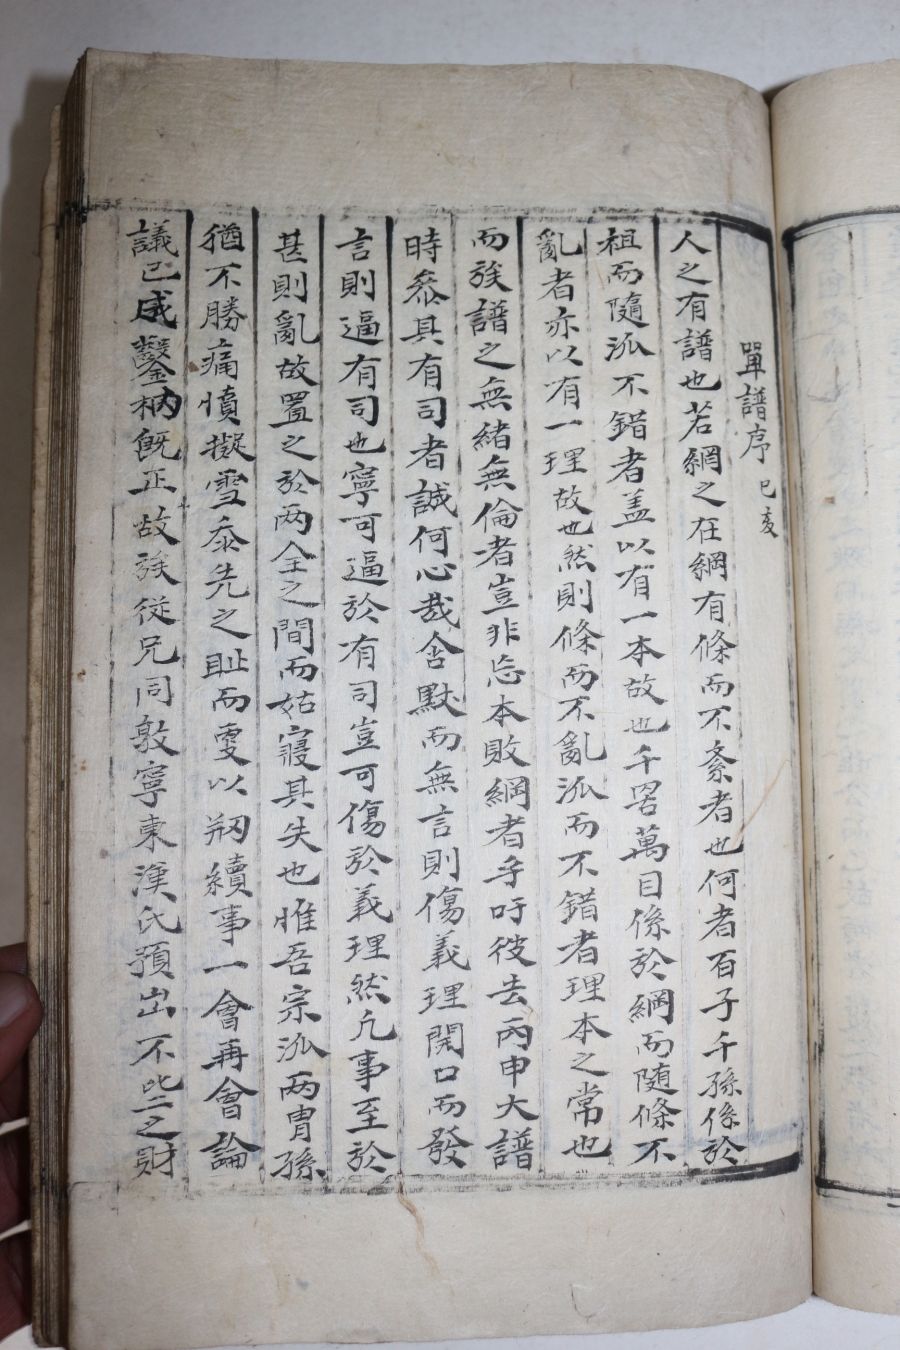 單譜序 己亥
人之有譜也若網之在綱有條而不紊者也何者百子千孫係於
祖而隨派不錯者盖以有一本故也千罟萬目係於綱而随條不
亂者亦以有一理故也然則條而不亂派而不錯者理本之常也
而族譜之無緒無倫者豈非忘本敗綱者乎吁彼去丙申大譜
時叅其有司者誠何心哉含默而無言則傷義理開口而發
言則逼有司也寧可逼於有司豈可傷於義理然凡事至於
甚則亂故置之於两全之間而姑寢其失也惟吾宗派两胄孫
猶不勝痛憤擬雪忝先之耻而更以剏續事一會再會論
議已成鑿枘旣正故族從兄同敦寧東漢氏預出不貲之財